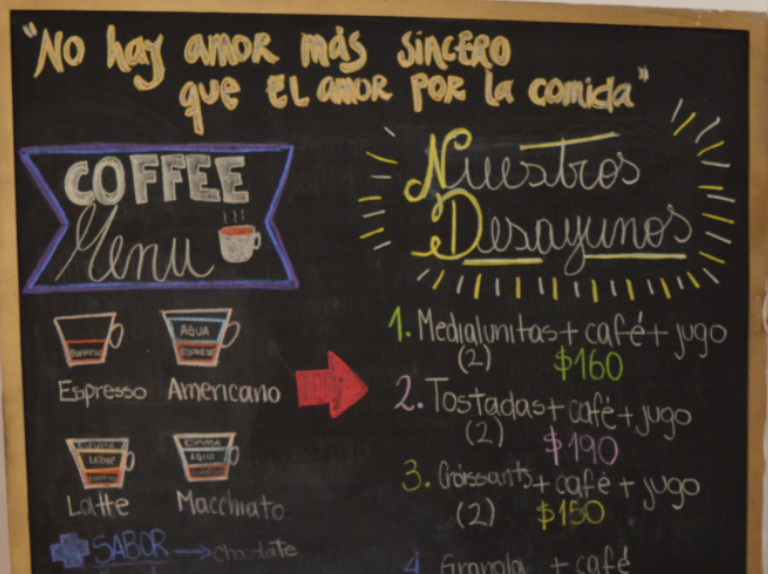 "No hay amor más sincero
que el amor por la comida"
COFFEE
Menu
Nuestros
Desayunos
ESPRESSO
AGUA
ESPRESSO
Espresso Americano
ESPUMA
LECHE
ESPRESSO
ESPUMA
AGUA
ESPRESSO
Latte Macchiato
+ SABOR → chocolate
1. Medialunitas + café + jugo
(2) $160
2. Tostadas + café + jugo
(2) $190
3. Croissants + café + jugo
(2) $150
4 Granola + café